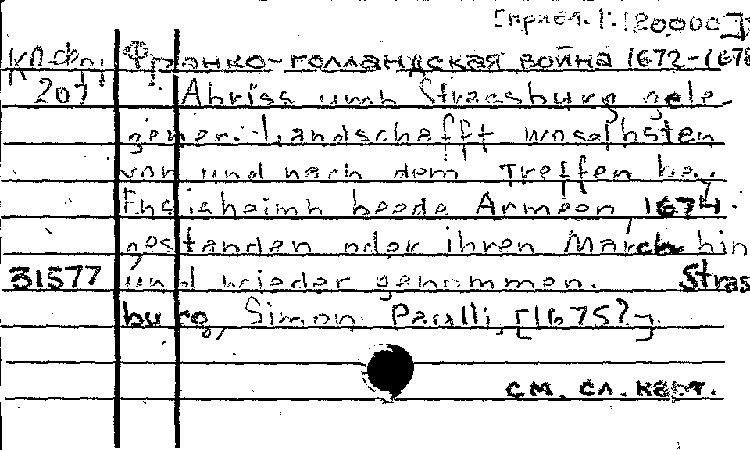 [прибл. 1:120000]
Кп Фр Франко-голландская война 1672-1678
207 Abriss umb Strassburg gele-
gener Landschafft woselbsten
von und nach dem Treffen bey
Ensisheimb beede Armeen 1674.
gestanden oder ihren March hin
31577 und wieder genommen. Stras
burg, Simon Paulli, [1675?].
см. сл. карт.